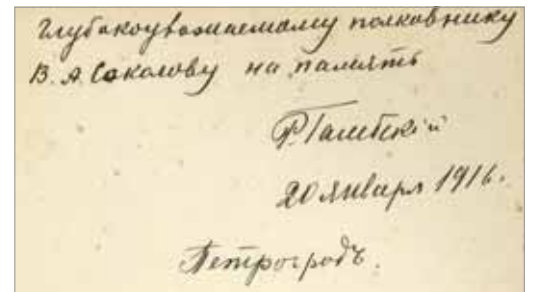 Глубокоуважаемому полковнику
В. А. Соколову на память
20 января 1916.
Петроградъ.